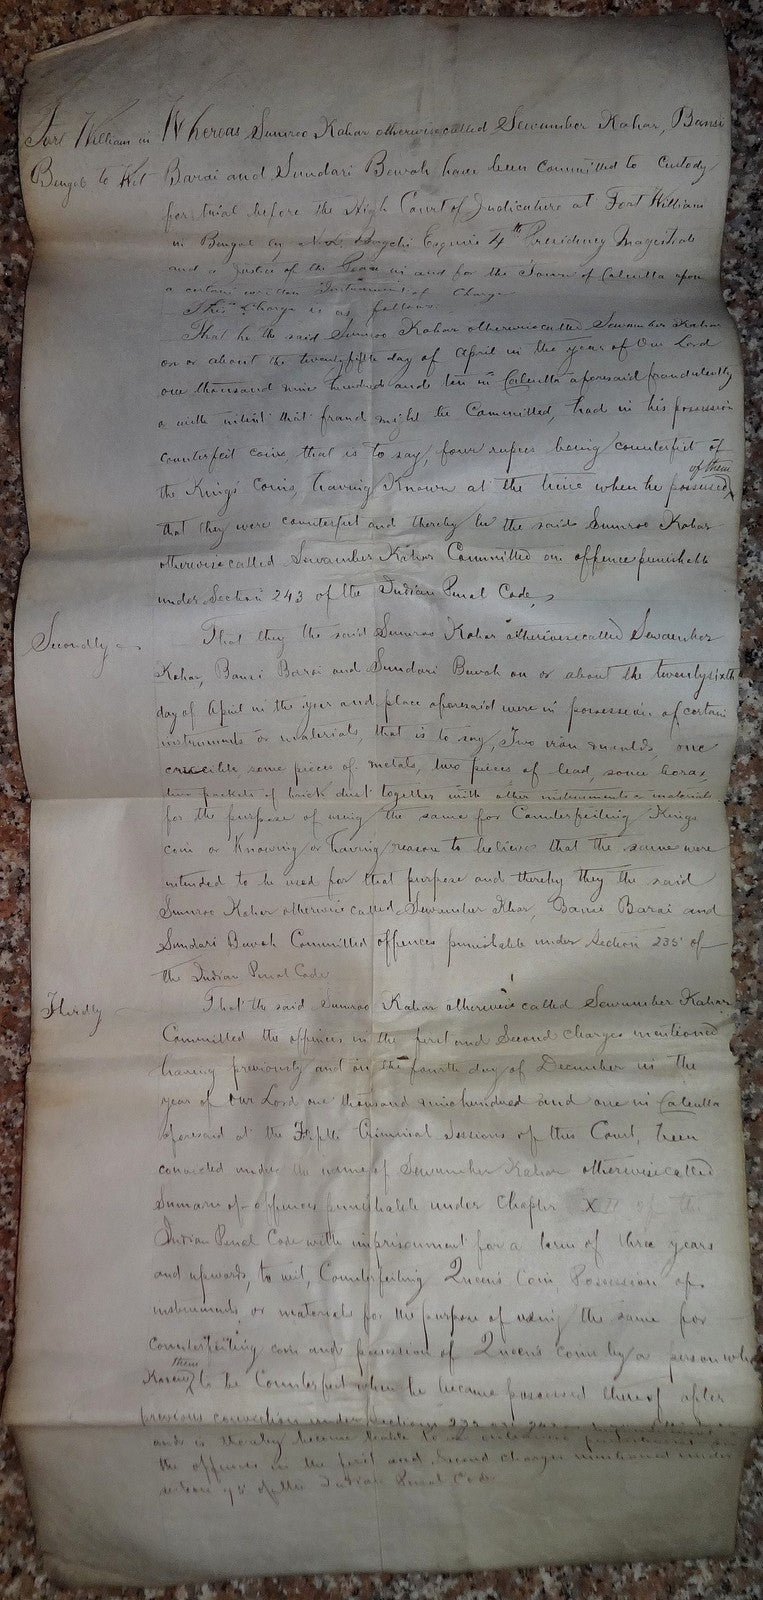 Fort William in Whereas Sumroo Kahar otherwise called Sewumber Kahar, Bansi
Bengal to Wit Barai and Sundari Bewah have been committed to custody
for trial before the High Court of Judicature at Fort William
in Bengal by Bagchi Esquire 4th Presidency Magistrate
and a Justice of the Peace in and for the Town of Calcutta upon
a certain written Instrument of Charge
This Charge is as follows.
That he the said Sumroo Kahar otherwise called Sewumber Kahar
on or about the twentyfifth day of April in the year of Our Lord
one thousand nine hundred and ten in Calcutta aforesaid fraudulently
or with intent that fraud might be Committed, had in his possession
counterfeit coins, that is to say, four rupees being counterfeit of
the King's Coins, having Known at the time when he possessed of them
that they were counterfeit and thereby he the said Sumroo Kahar
otherwise called Sewumber Kahar Committed an offence punishable
under Section 243 of the Indian Penal Code,
Secondly That they the said Sumroo Kahar otherwise called Sewumber
Kahar, Bansi Barai and Sundari Bewah on or about the twentysixth
day of April in the year and place aforesaid were in possession of certain
instruments or materials, that is to say, Two iron moulds, one
crucible, some pieces of metals, two pieces of lead, some borax,
two packets of brick dust together with other instruments & materials
for the purpose of using the same for Counterfeiting Kings
coin or Knowing or having reason to believe that the same were
intended to be used for that purpose and thereby they the said
Sumroo Kahar otherwise called Sewumber Khar, Bansi Barai and
Sundari Bewah Committed offences punishable under Section 235 of
the Indian Penal Code
Thirdly That the said Sumroo Kahar otherwise called Sewumber Kahar
Committed the offences in the first and Second charges mentioned
having previously and on the fourth day of December in the
year of Our Lord one thousand ninehundred and one in Calcutta
aforesaid at the Fifth Criminal Sessions of this Court, been
convicted under the name of Sewumber Kahar otherwise called
Sumaru of offences punishable under Chapter XII of the
Indian Penal Code with imprisonment for a term of three years
and upwards, to wit, Counterfeiting Queen's Coin, Possession of
instruments or materials for the purpose of using the same for
counterfeiting coin and possession of Queen's coin by a person who
Knew them to be Counterfeit when he became possessed thereof after
previous conviction under Sections
and is thereby become liable to an enhanced punishment for
the offences in the first and Second charges mentioned under
section 75 of the Indian Penal Code